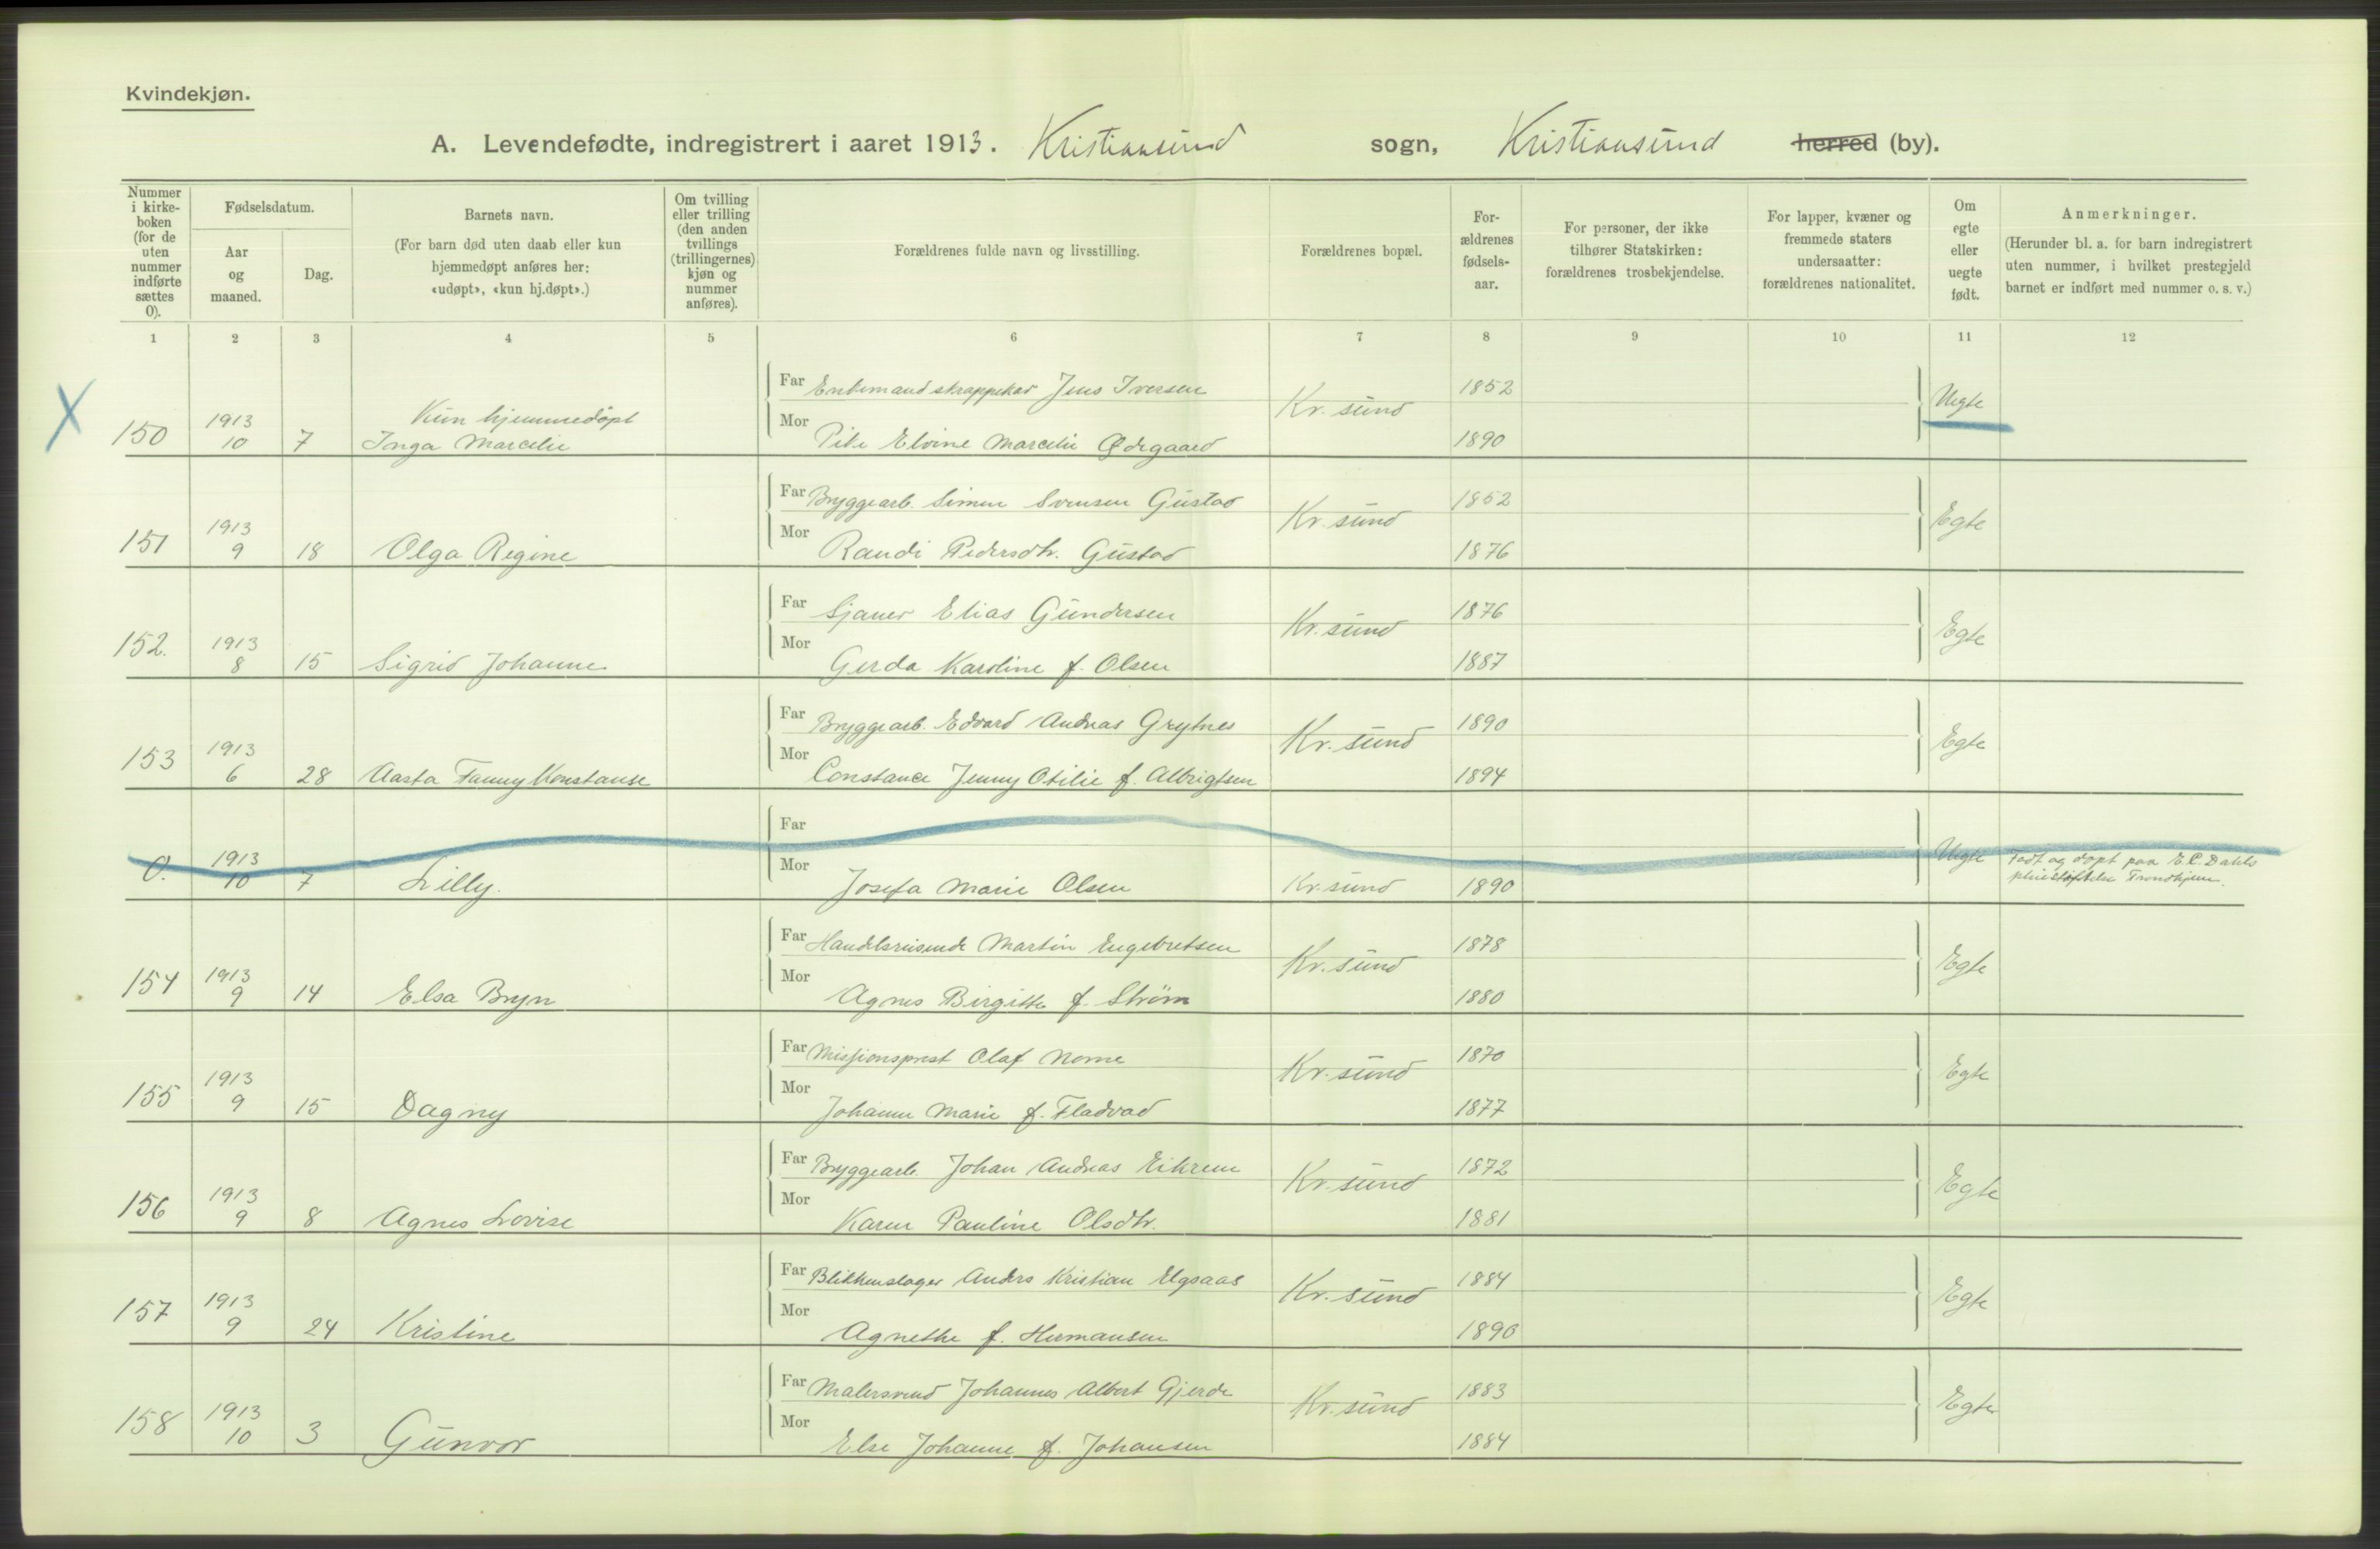 Kvindekjøn.
A. Levendefødte, indregistrert i aaret 1913. Kristiansund sogn, Kristiansund herred (by).
Nummer i kirke-boken (for de uten nummer indførte sættes 0).
Fødselsdatum.
Aar og maaned.
Dag.
Barnets navn.
(For barn død uten daab eller kun hjemmedøpt anføres her: «udøpt», «kun hj.døpt».)
Om tvilling eller trilling (den anden tvillings (trillingernes) kjøn og nummer anføres).
Forældrenes fulde navn og livsstilling.
Forældrenes bopæl.
For-ældrenes fødsels-aar.
For personer, der ikke tilhører Statskirken: forældrenes trosbekjendelse.
For lapper, kvæner og fremmede staters undersaatter: forældrenes nationalitet.
Om egte eller uegte født.
Anmerkninger.
(Herunder bl. a. for barn indregistrert uten nummer, i hvilket prestegjeld barnet er indført med nummer o. s. v.)
1 2 3 4 5 6 7 8 9 10 11 12
X
Far Enkemand skrappekar Jens Iversen Kr.sund 1852 Uegte
150 1913 10 7 Kun hjemmedøpt Inga Marcelie
Mor Pike Elvine Marcelie Ødegaard 1890
Far Bryggearb. Simen Svensen Gustad Kr.sund 1852 Egte
151 1913 9 18 Olga Regine
Mor Randi Pedersdtr. Gustad 1876
Far Sjauer Elias Gundersen Kr.sund 1876 Egte
152. 1913 8 15 Sigrid Johanne
Mor Gerda Karoline f. Olsen 1887
Far Bryggearb. Edvard Andreas Grytnes Kr.sund 1890 Egte
153 1913 6 28 Aasta Fanny Konstanse
Mor Constance Jenny Otilie f. Albrigtsen 1894
Far
0. 1913 10 7 Lilly. Uegte Født og døpt paa E.C. Dahls
Mor Josefa Marie Olsen Kr.sund 1890 pleiestiftelse Trondhjem.
Far Handelsreisende Martin Engebretsen Kr.sund 1878 Egte
154 1913 9 14 Elsa Bryn
Mor Agnes Birgitte f. Strøm 1880
Far Missionsprest Olaf Nome Kr.sund 1870 Egte
155 1913 9 15 Dagny
Mor Johanne Marie f. Fladvad 1877
Far Bryggearb. Johan Andreas Eikrem Kr.sund 1872 Egte
156 1913 9 8 Agnes Lovise
Mor Karen Pauline Olsdtr. 1881
Far Blikkenslager Anders Kristian Elgsaas Kr.sund 1884 Egte
157 1913 9 24 Kristine
Mor Agnethe f. Hermansen 1890
Far Malersvend Johannes Albert Gjerde Kr.sund 1883 Egte
158 1913 10 3 Gunvor
Mor Else Johanne f. Johansen 1884